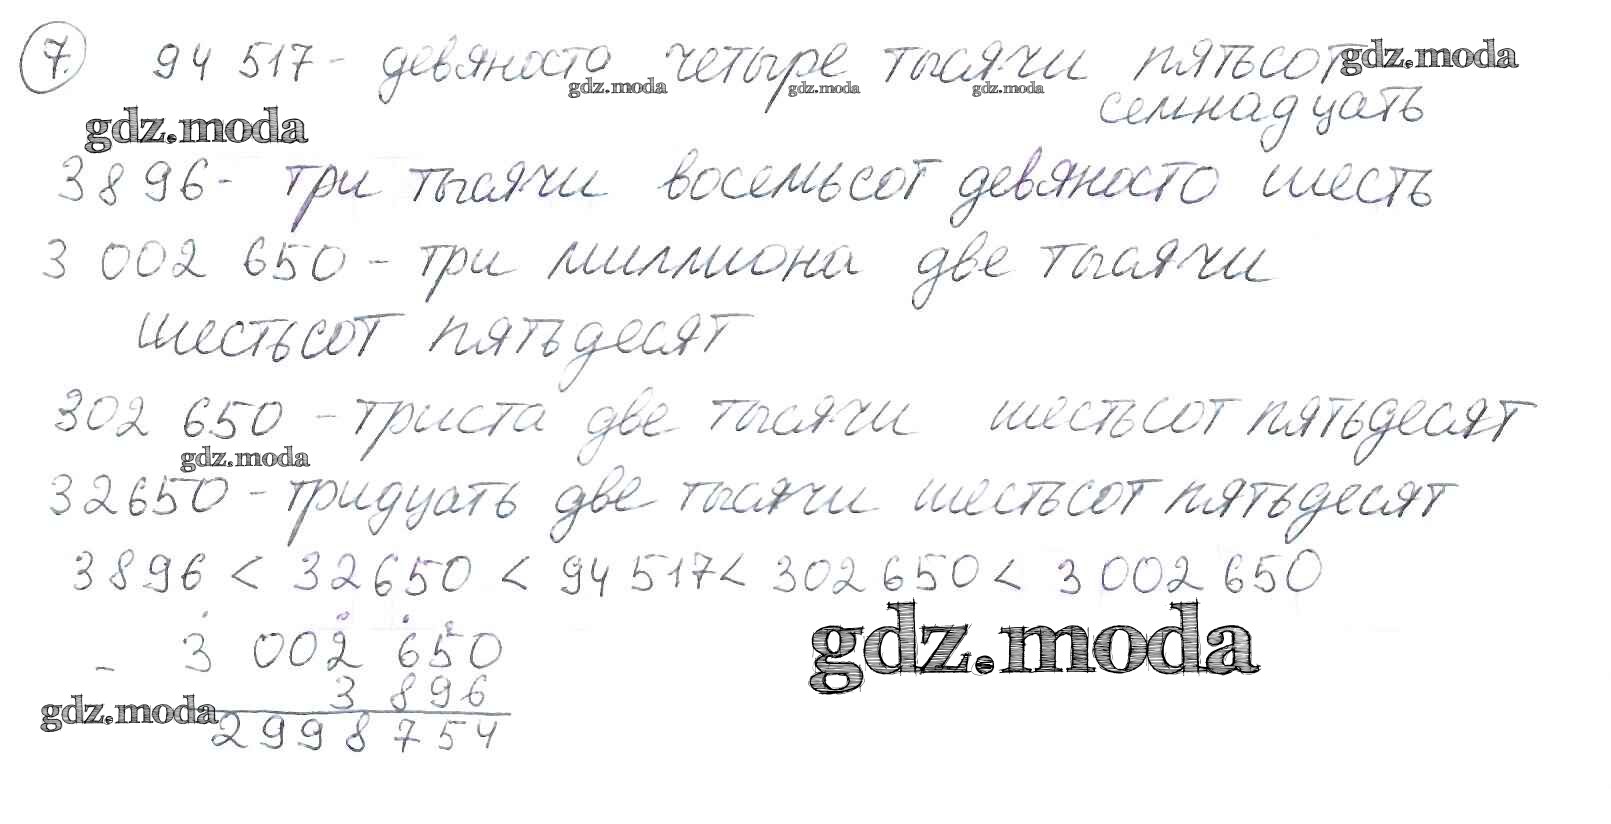 7. 94 517 - девяносто четыре тысячи пятьсот gdz.moda
gdz.moda gdz.moda gdz.moda
семнадцать
gdz.moda
3 896 - три тысячи восемьсот девяносто шесть
3 002 650 - три миллиона две тысячи
шестьсот пятьдесят
302 650 - триста две тысячи шестьсот пятьдесят
gdz.moda
32650 - тридцать две тысячи шестьсот пятьдесят
3896 < 32650 < 94 517 < 302 650 < 3 002 650
- 3 002 650
gdz.moda
3 896
gdz.moda
2998754